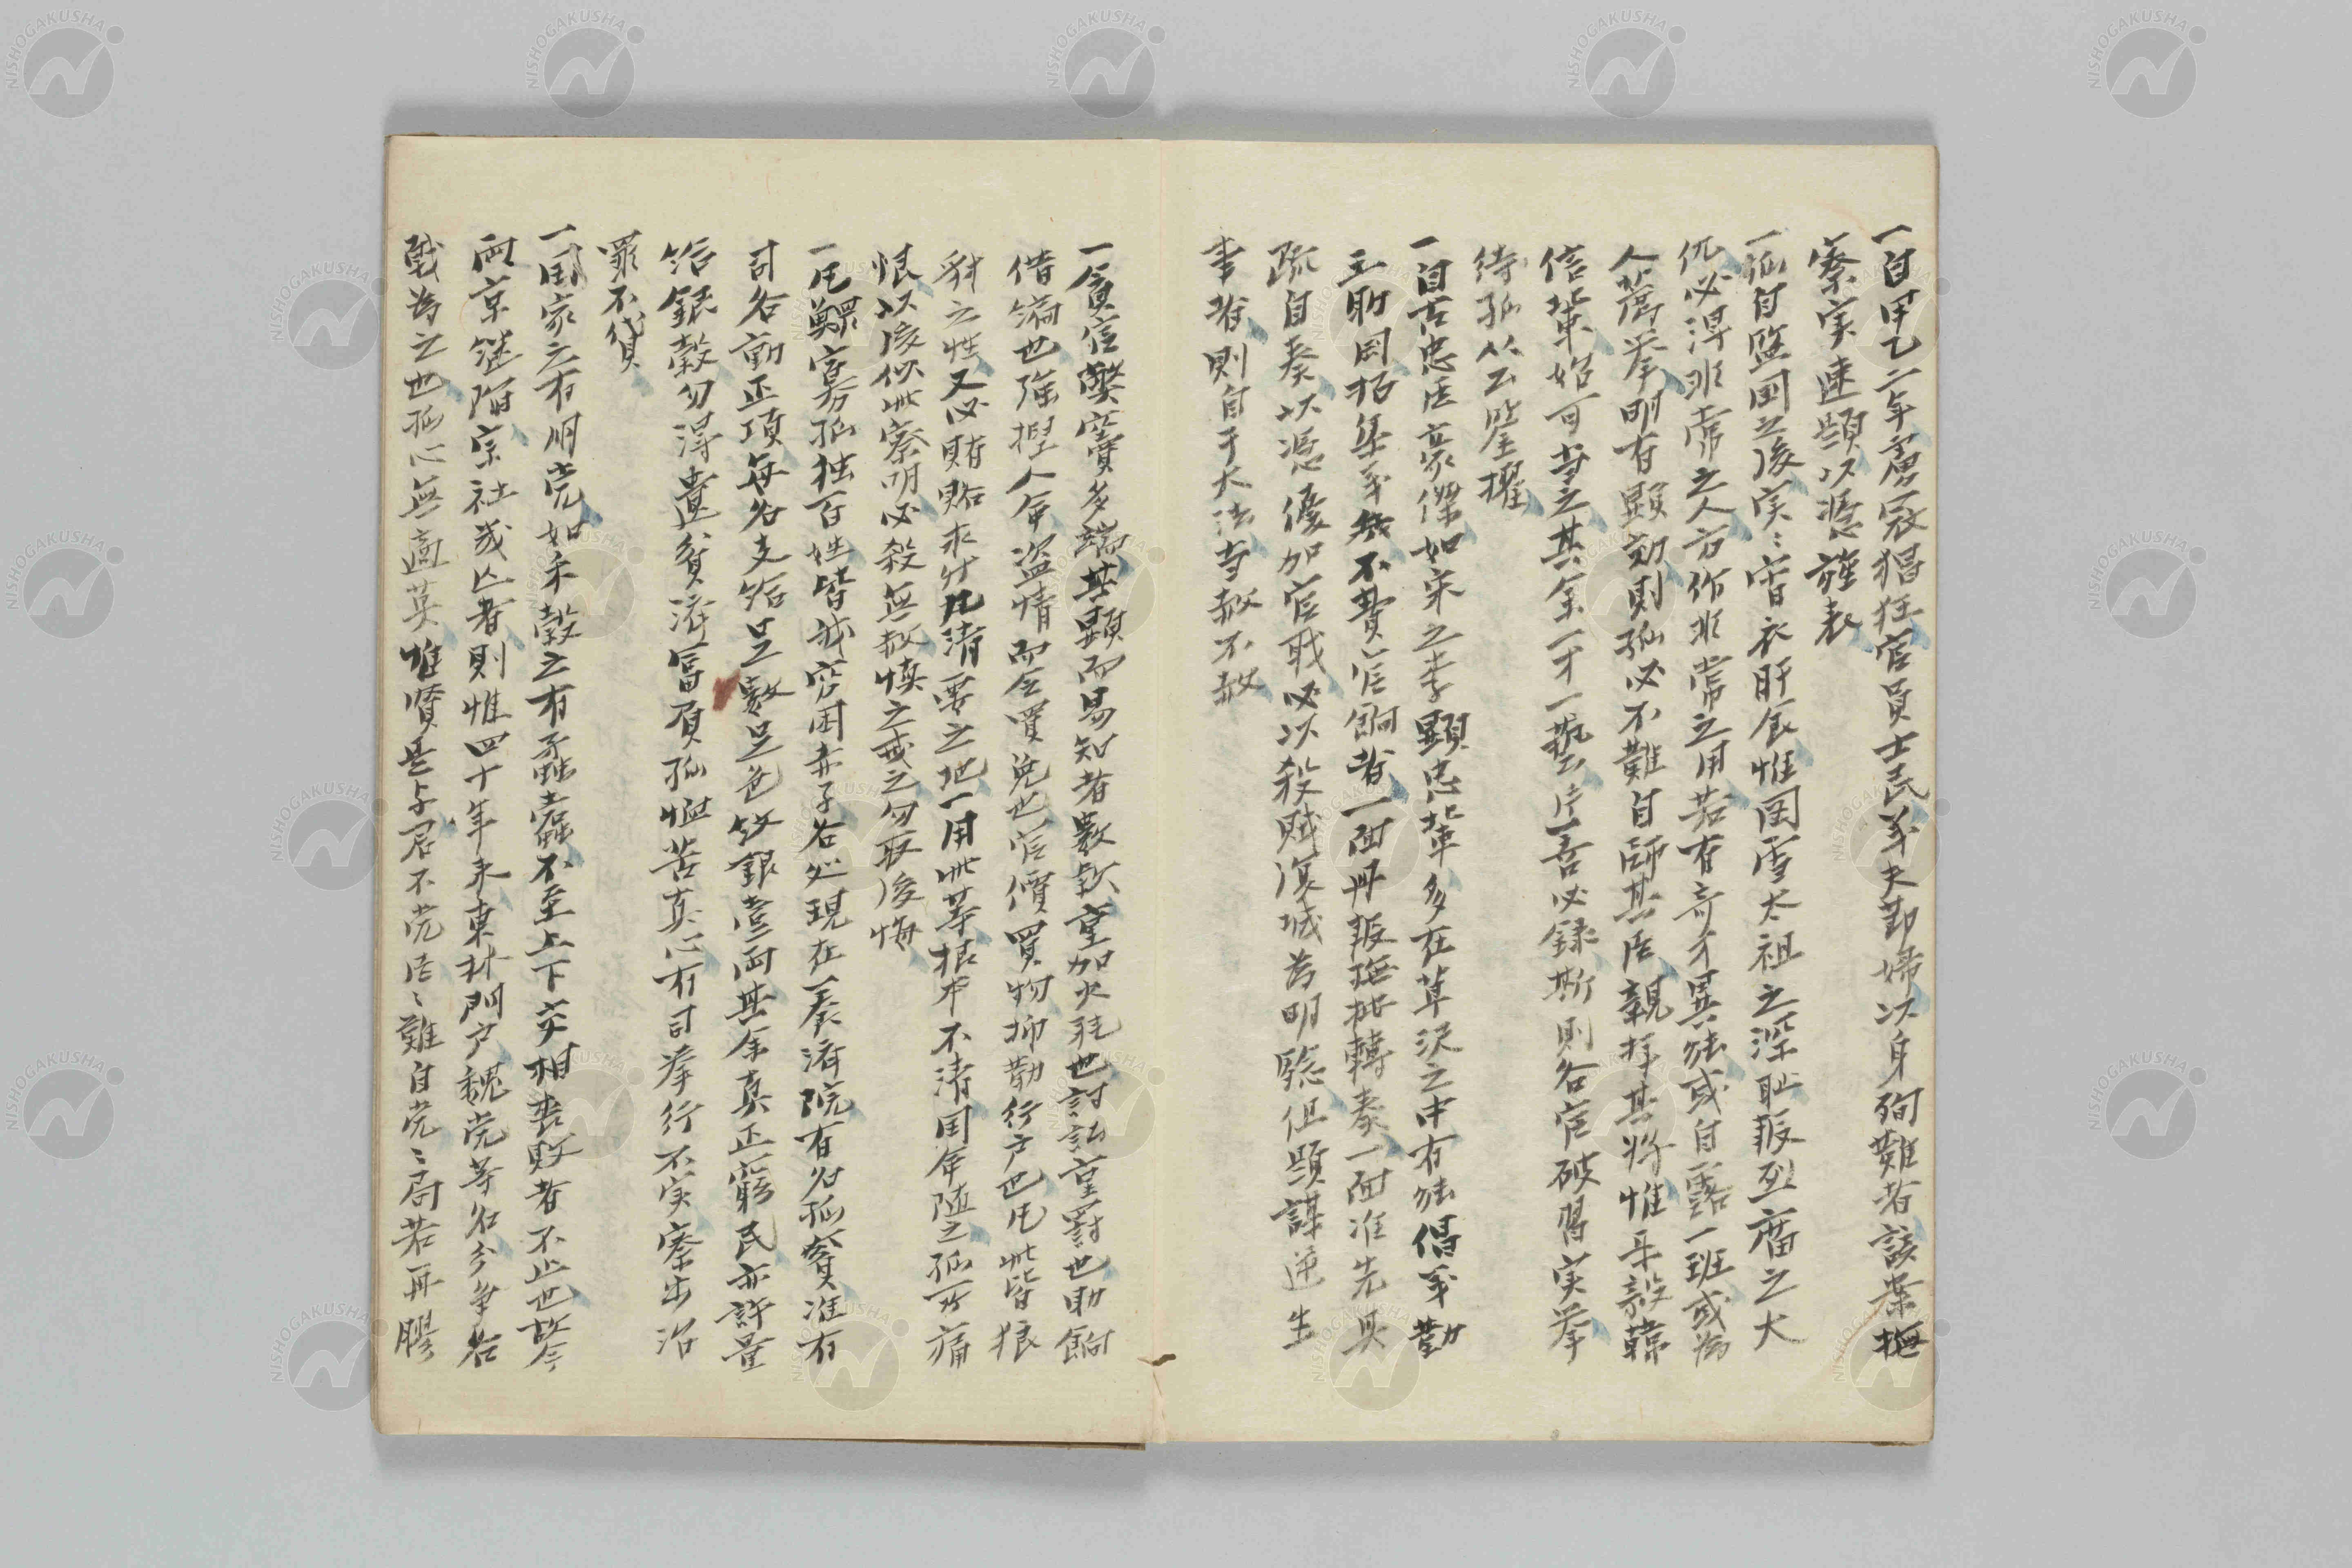 一自甲乙二年虜冦猖狂官員士民羊夫節婦以身殉難者該察撫
察実速題以憑旌表
一孤自監国之後実〻宵衣旰食惟图雪太祖之深耻報烈廟之大
仇必得非常之人方作非常之用若有奇才異能或自露一班或為
人薦举明有顕効則孤必不難自師其臣親拝其将惟平毅韓
信輩始可当之其余一才一藝片言必録斯則各官破習実举
待孤公公鉴擢
一自古忠臣豪傑如宋之李顕忠輩多在草沢之中有能倡義勤
王助国招集義兵不費官餉者一面冊報撫按轉奏一面准先具
疏自奏以憑優加官職必以殺賊復城為明騐但題謀逆生
事者則自于大法幸赦不赦
一貪官弊竇多端其顕而易知者數款重加火耗也討訟重罸也助餉
借端也強捏人命盗情而全買免也官價買物抑勒行户也凡此皆狼
豺之性又必賄賂求陞凡清要之地一用此等根本不清国命隨之孤所痛
恨以後似此察明必殺無赦慎之戒之勿取後悔
一凡鰥寡孤独百姓皆我窮困赤子各処現在養济院有名孤貧准有
司各動正項每名支給足數足色紋銀壹両其余真正窮民亦許量
給銀穀勿得遺貧濟富頁孤慍苦真心有司举行不実察出治
罪不貸
一国家之有朋党如禾穀之有蟊蠹不至上下交相喪敗者不止也故今
両京継陥宗社或亡者則惟四十年来東林門户魏党等名分争名
戰為之也孤心無適莫惟賢是与君不党臣〻難自党〻局若再膠